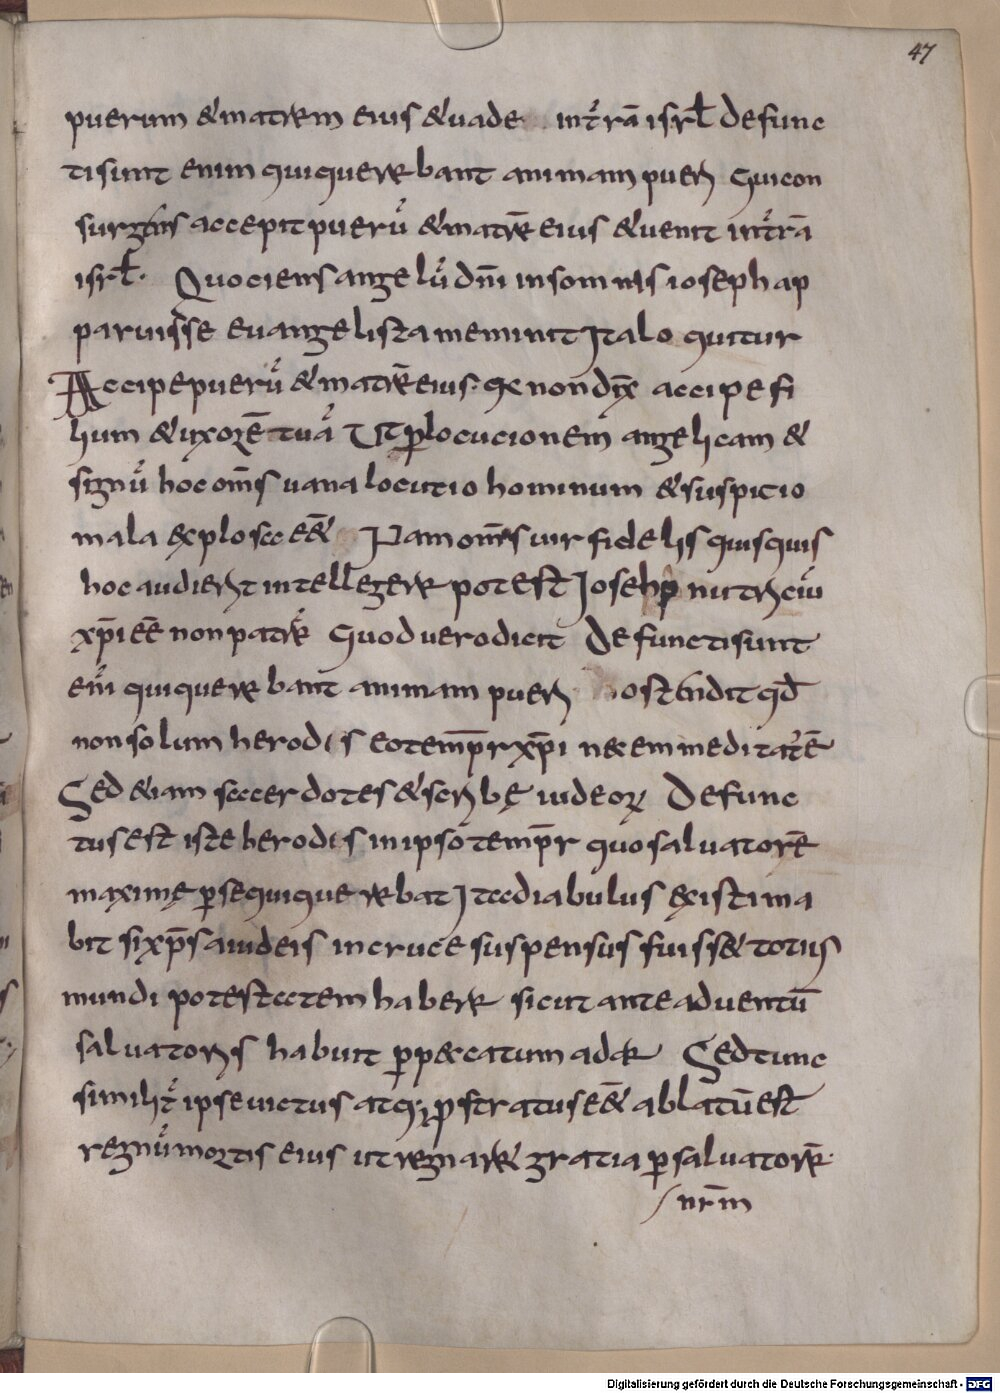 47
puerum & matrem eius & uade in t̄rā isrł defunc
ti sunt enim qui querebant animam pueri Qui con
surgens accepit puerū & matrē eius & uenit in t̄rā
isrł. Quociens angelū dn̄i in somnis ioseph ap
paruisse euangelista meminit Ita loquitur
Accipe puerū & matrē eius. & non dix̄ accipe fi
lium & uxorē tuā Ut ꝑ locucionem angelicam &
signū hoc om̄s uana locutio hominum & suspicio
mala explosa e&̄ Nam om̄es uir fidelis quisquis
hoc audierit intellegere potest Ioseph nutriciū
xp̄i eē non patrē Quod uero dicit Defuncti sunt
enī qui querebant animam pueri ostendit qd̄
non solum herodis eo temp̄r xp̄i necem meditatē
Sed &iam sacerdotes & scribę iudeoꝝ Defunc
tus est iste herodis in ipso temp̄r quo saluatorē
maximę ꝑsequi querebat Ita diabulus existima
bit si xp̄s a iudeis in cruce suspensus fuiss& totius
mundi potestatem habere sicut ante aduentū
saluatoris habuit ꝑ peccatum adae Sed tunc
similit̄ ipse uictus atq; ꝓstratus e&̄ ablatū est
regnū mortis eius ut regnare gratia ꝑ saluatorē
nr̄m
Digitalisierung gefördert durch die Deutsche Forschungsgemeinschaft - DFG